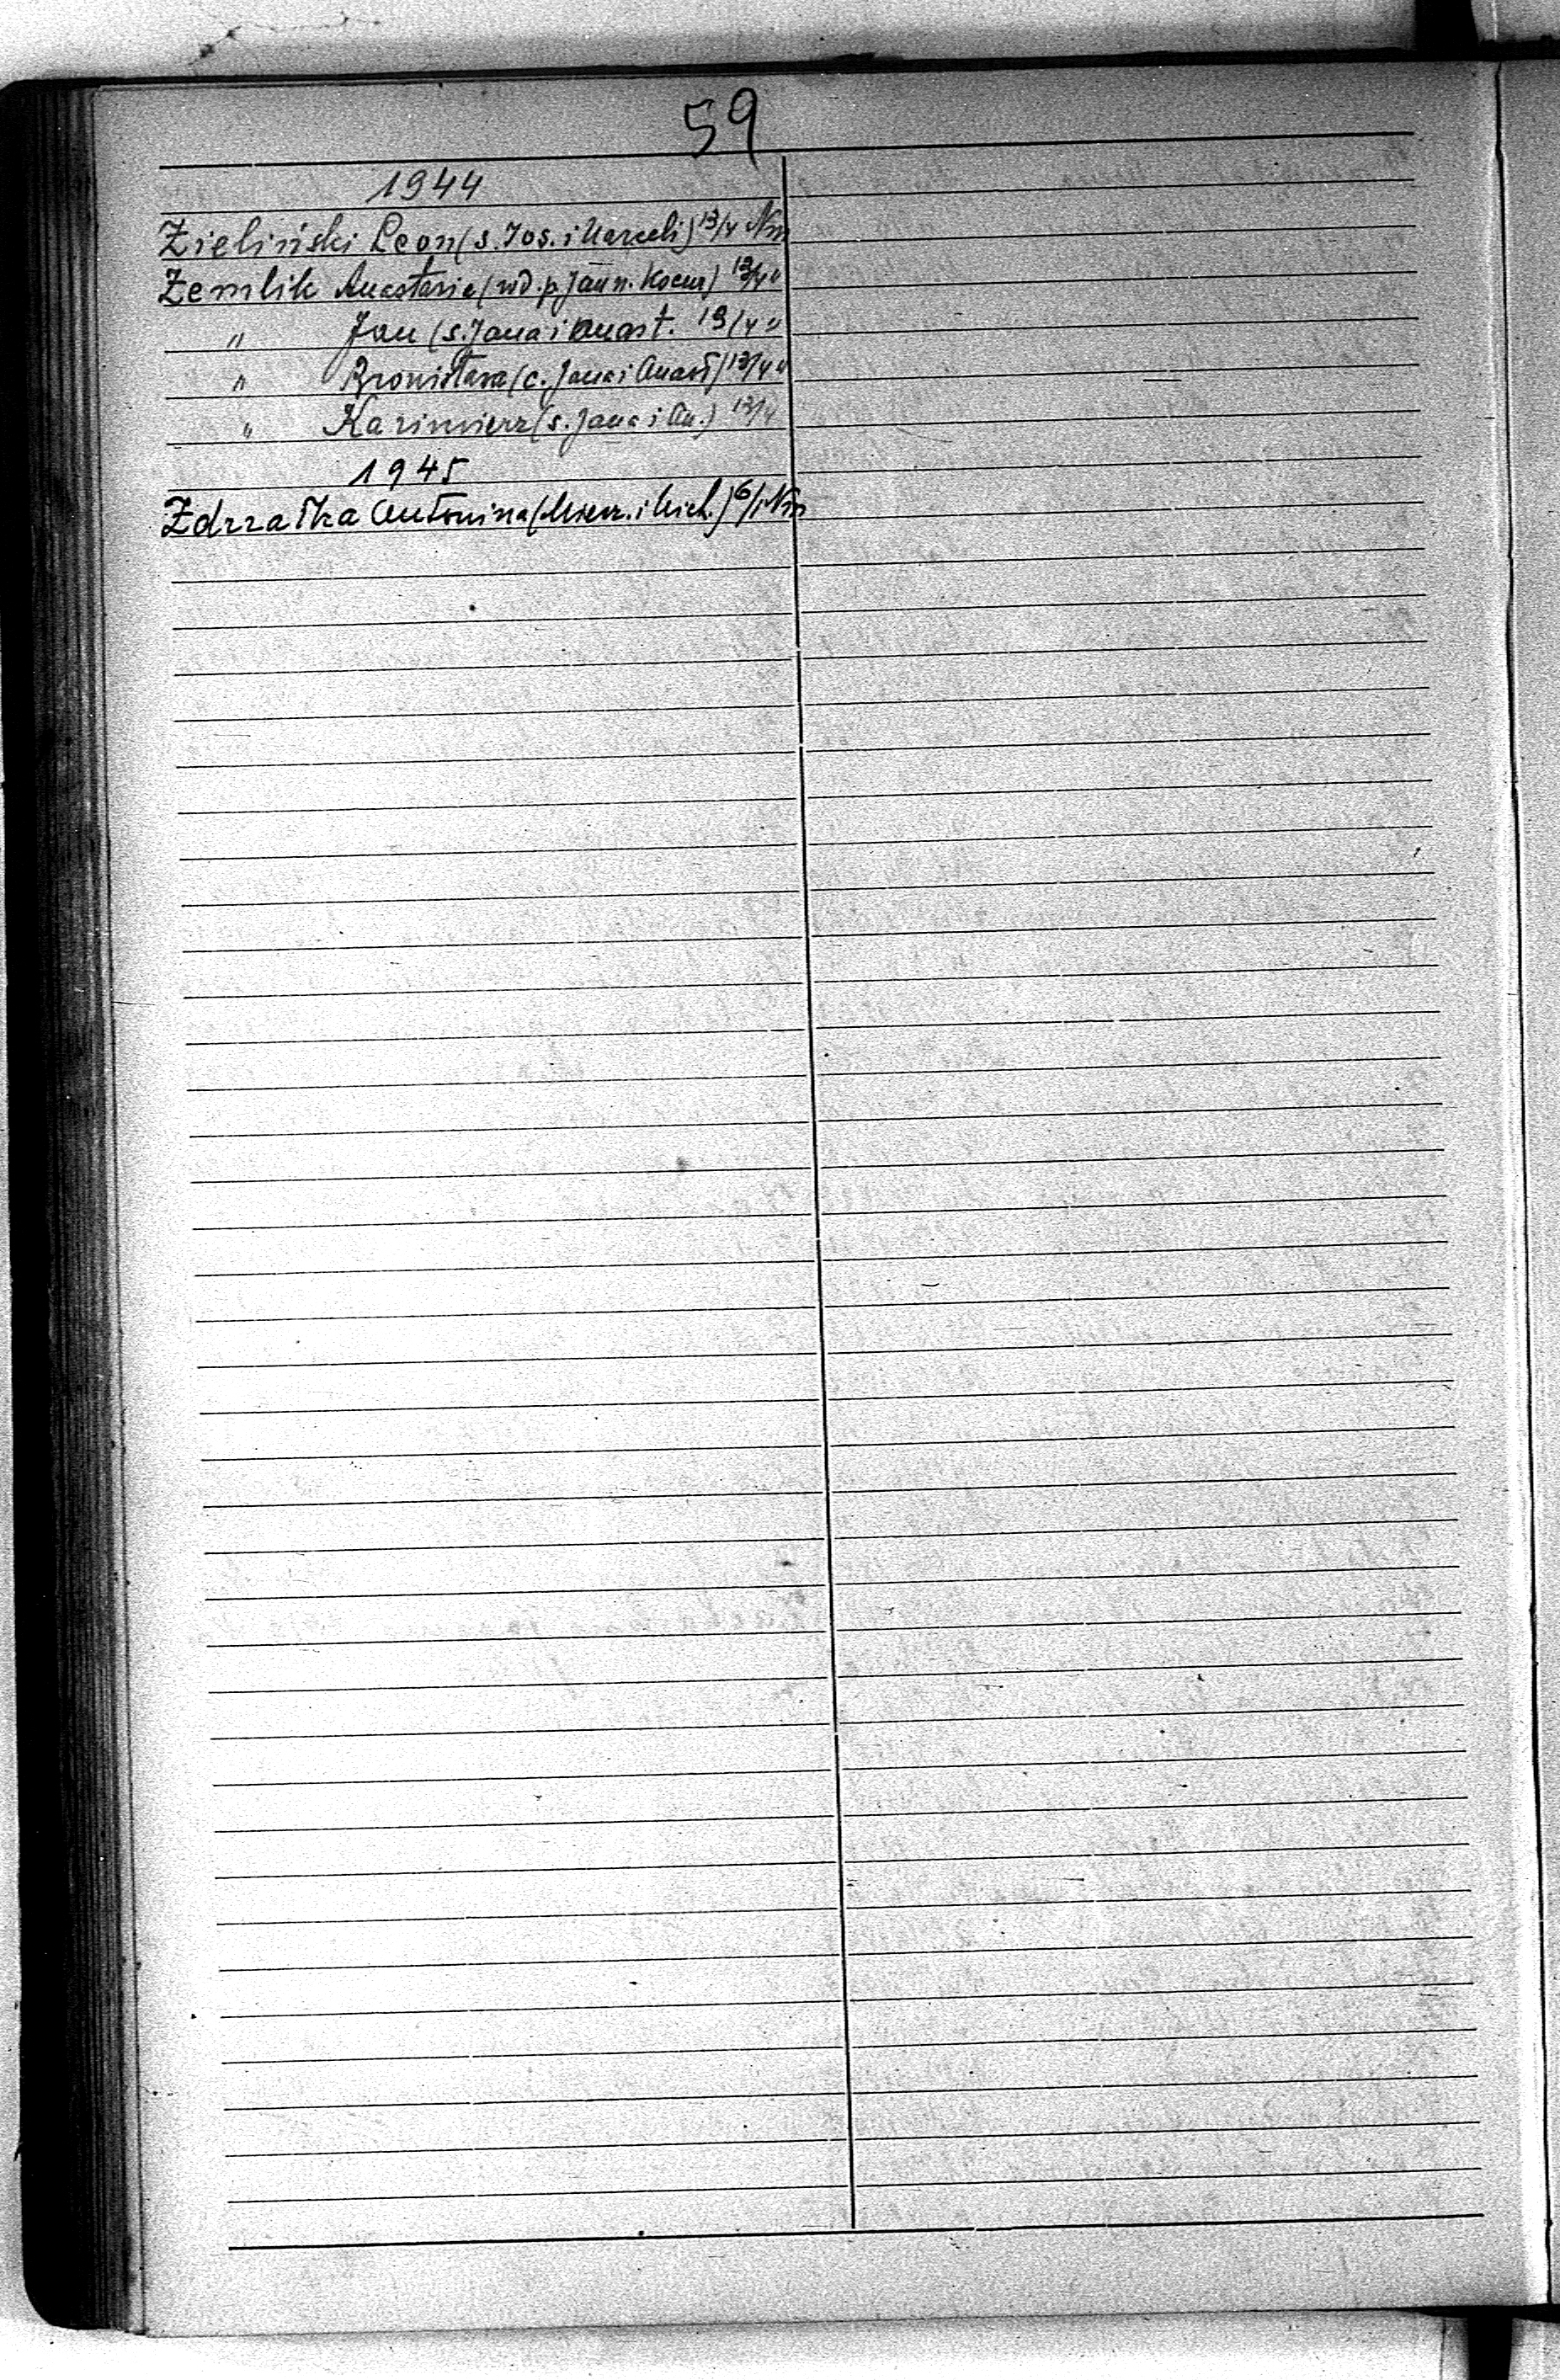 59
1944
Zieliński Leon (s. Jos. i Marceli) 13/4 Nm
Żemlik Anastazia (wd. p. Jan n. Kocur) 13/4 "
" Jan (s. Jana i Anast. 13/4 "
" Bronisława (c. Jana i Anast) 13/4 "
" Kazimierz (s. Jana i An.) 13/4
1945
Zdrzałka Antonina ( i Mich.) 6/1 Nm